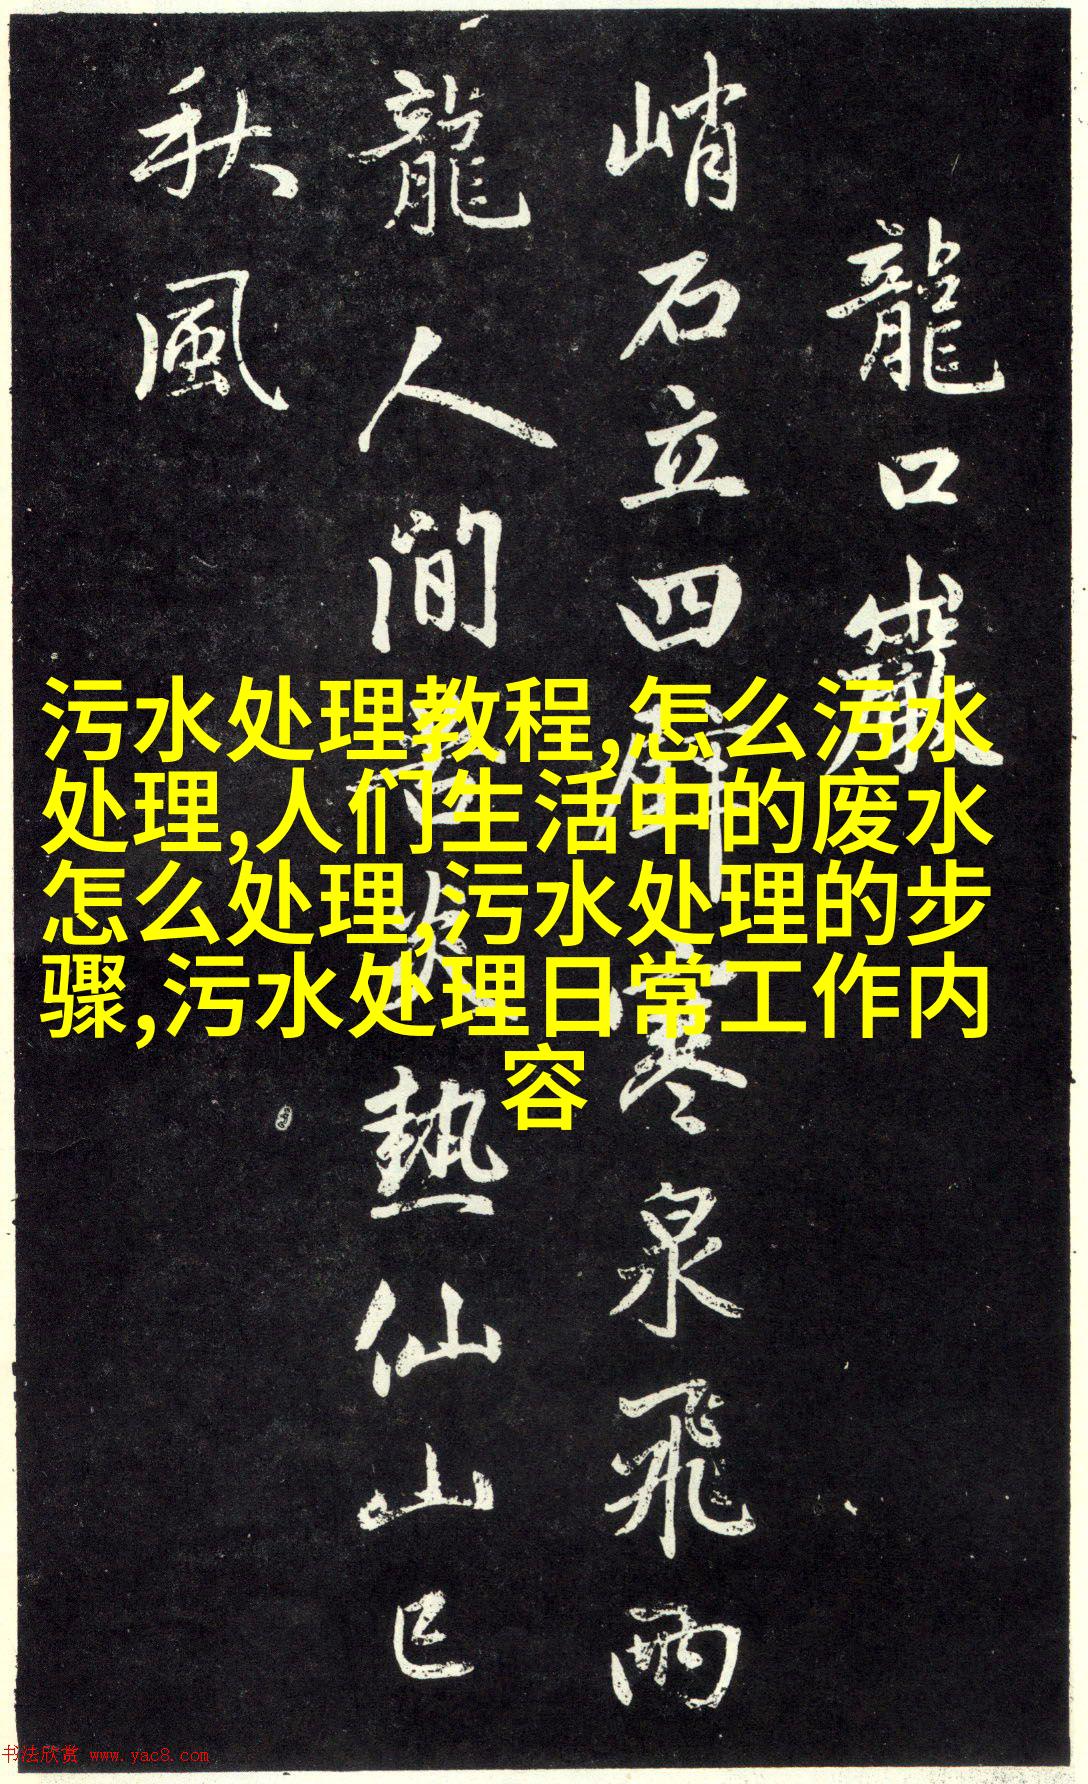 龍口巖
峭石立四壁寒泉飛兩
龍人間苦炎熱仙山已
秋風
污水处理教程,怎么污水
处理,人们生活中的废水
怎么处理,污水处理的步
骤,污水处理日常工作内
容
书法欣赏 www.yac8.com